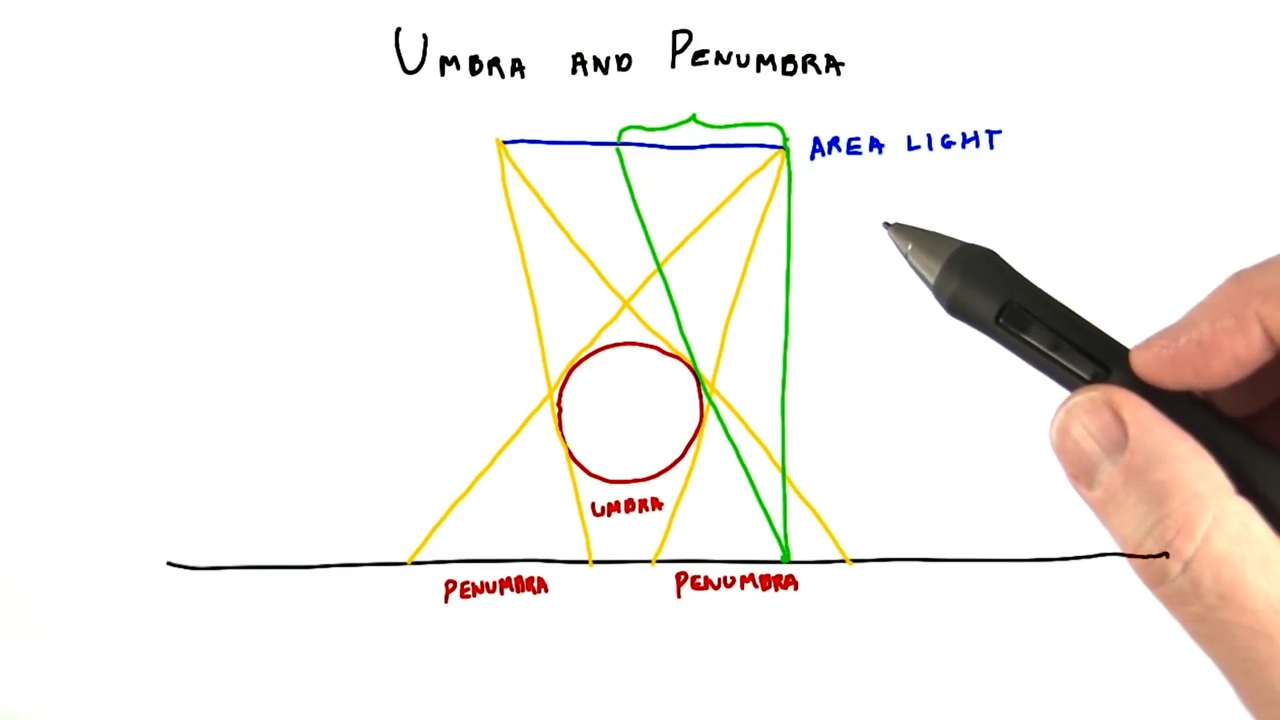 UMBRA AND PENUMBRA
AREA LIGHT
UMBRA
PENUMBRA
PENUMBRA